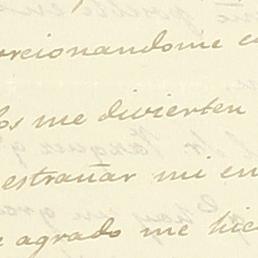 orcionandome c
los me divierten
estrañar mi en
agrado me hic